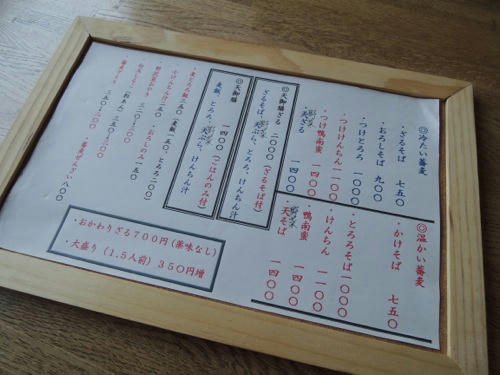 ◎冷たい蕎麦
・ざるそば 七五〇
・おろしそば 九〇〇
・つけとろろ 一〇〇〇
・つけけんちん 一一〇〇
・つけ鴨南蛮 一四〇〇
・野菜天ざる 一四〇〇
◎温かい蕎麦
・かけそば 七五〇
・とろろそば 一〇〇〇
・けんちん 一一〇〇
・鴨南蛮 一四〇〇
・野菜天そば 一四〇〇
◎天御膳ざる 二〇〇〇(ざるそば付)
ざるそば、天ぷら、とろろ、けんちん汁
◎天御膳 一四〇〇(ごはんのみ付)
麦飯、とろろ、野菜天ぷら、けんちん汁
・麦とろろ飯三五〇(麦飯一五〇 とろろ二〇〇)
・おろしのみ一五〇
・蕎麦ぜんざい八〇〇
・おかわりざる700円(薬味なし)
・大盛り(1.5人前)350円増